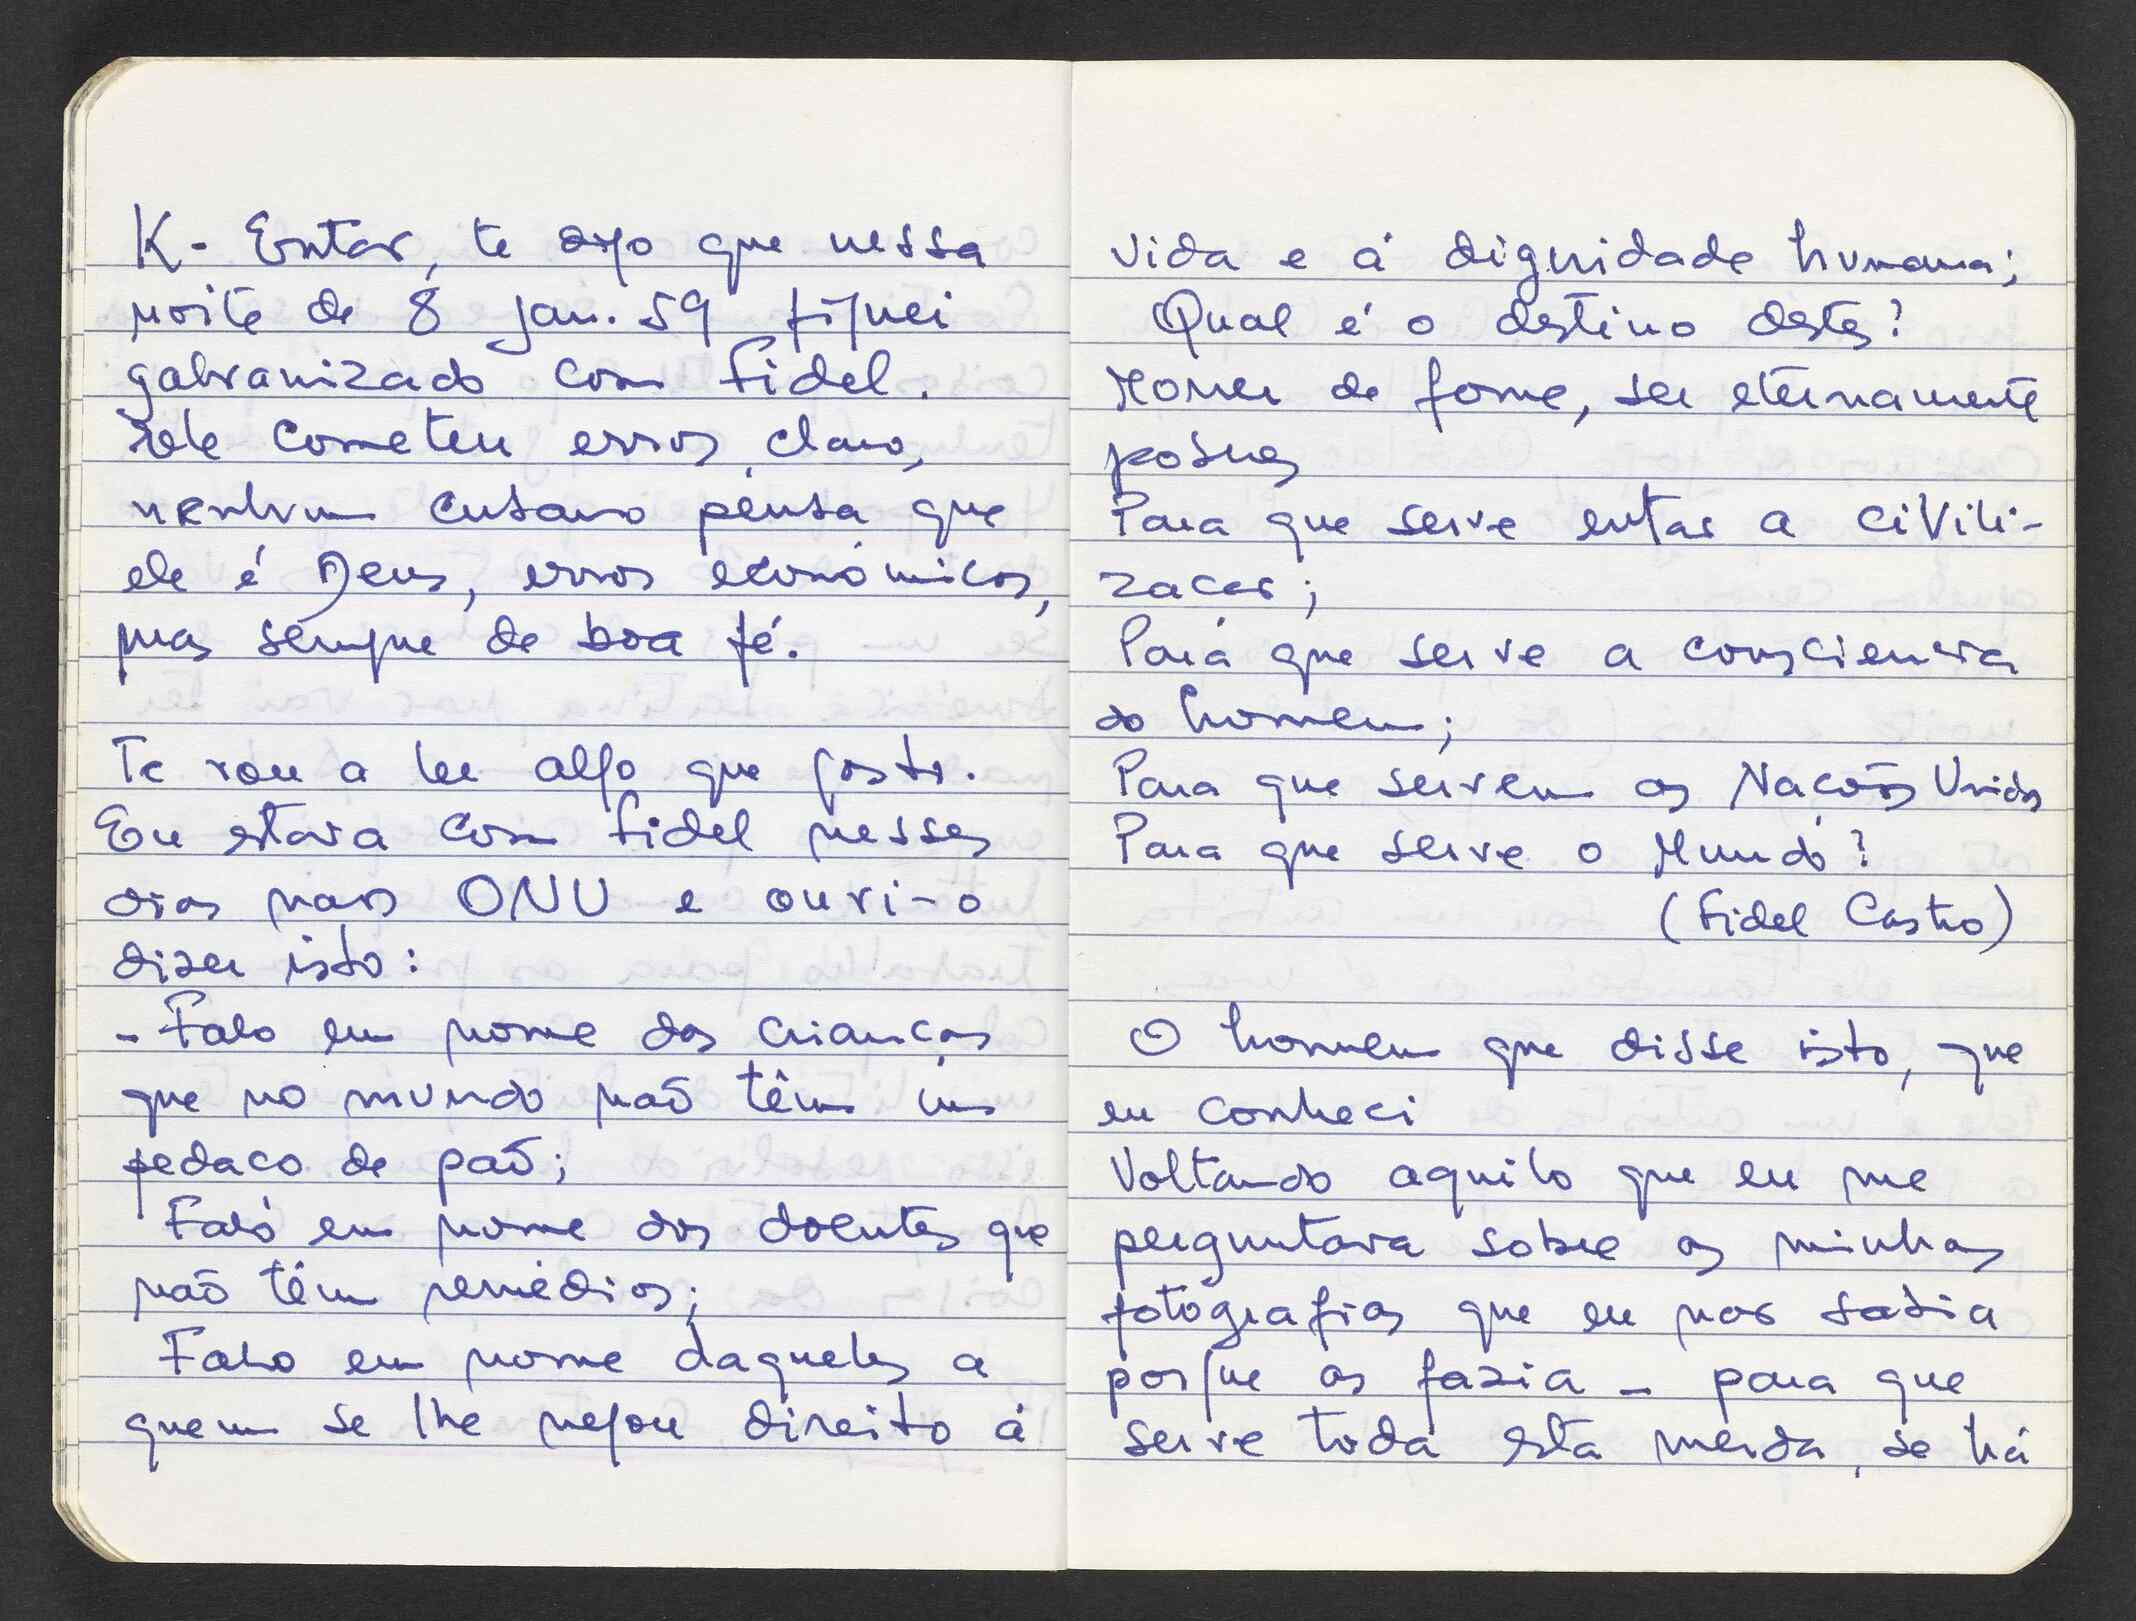 K - Entao, te digo que nessa
noite de 8 Jan. 59 fiquei
galvanizado com Fidel.
Ele cometeu erros, claro,
nenhum cubano pensa que
ele é Deus, erros económicos,
mas sempre de boa fé.
Te vou a ler algo que gosto.
Eu estava com Fidel nesses
dias nas ONU e ouvi-o
dizer isto:
- Falo em nome das crianças
que no mundo não têm um
pedaco de pão;
Falo em nome dos doentes que
não têm remédios;
Falo em nome daqueles a
quem se lhe negou direito á
vida e á dignidade humana;
Qual é o destino destes?
Morrer de fome, ser eternamente
pobres
Para que serve entao a civili-
zacao;
Para que serve a consciencia
do homem;
Para que servem as Nacões Unidas
Para que serve o Mundo?
(Fidel Castro)
O homem que disse isto, que
eu conheci
Voltando aquilo que eu me
perguntava sobre as minhas
fotografias que eu nao sabia
porque as fazia - para que
serve toda esta merda, se há